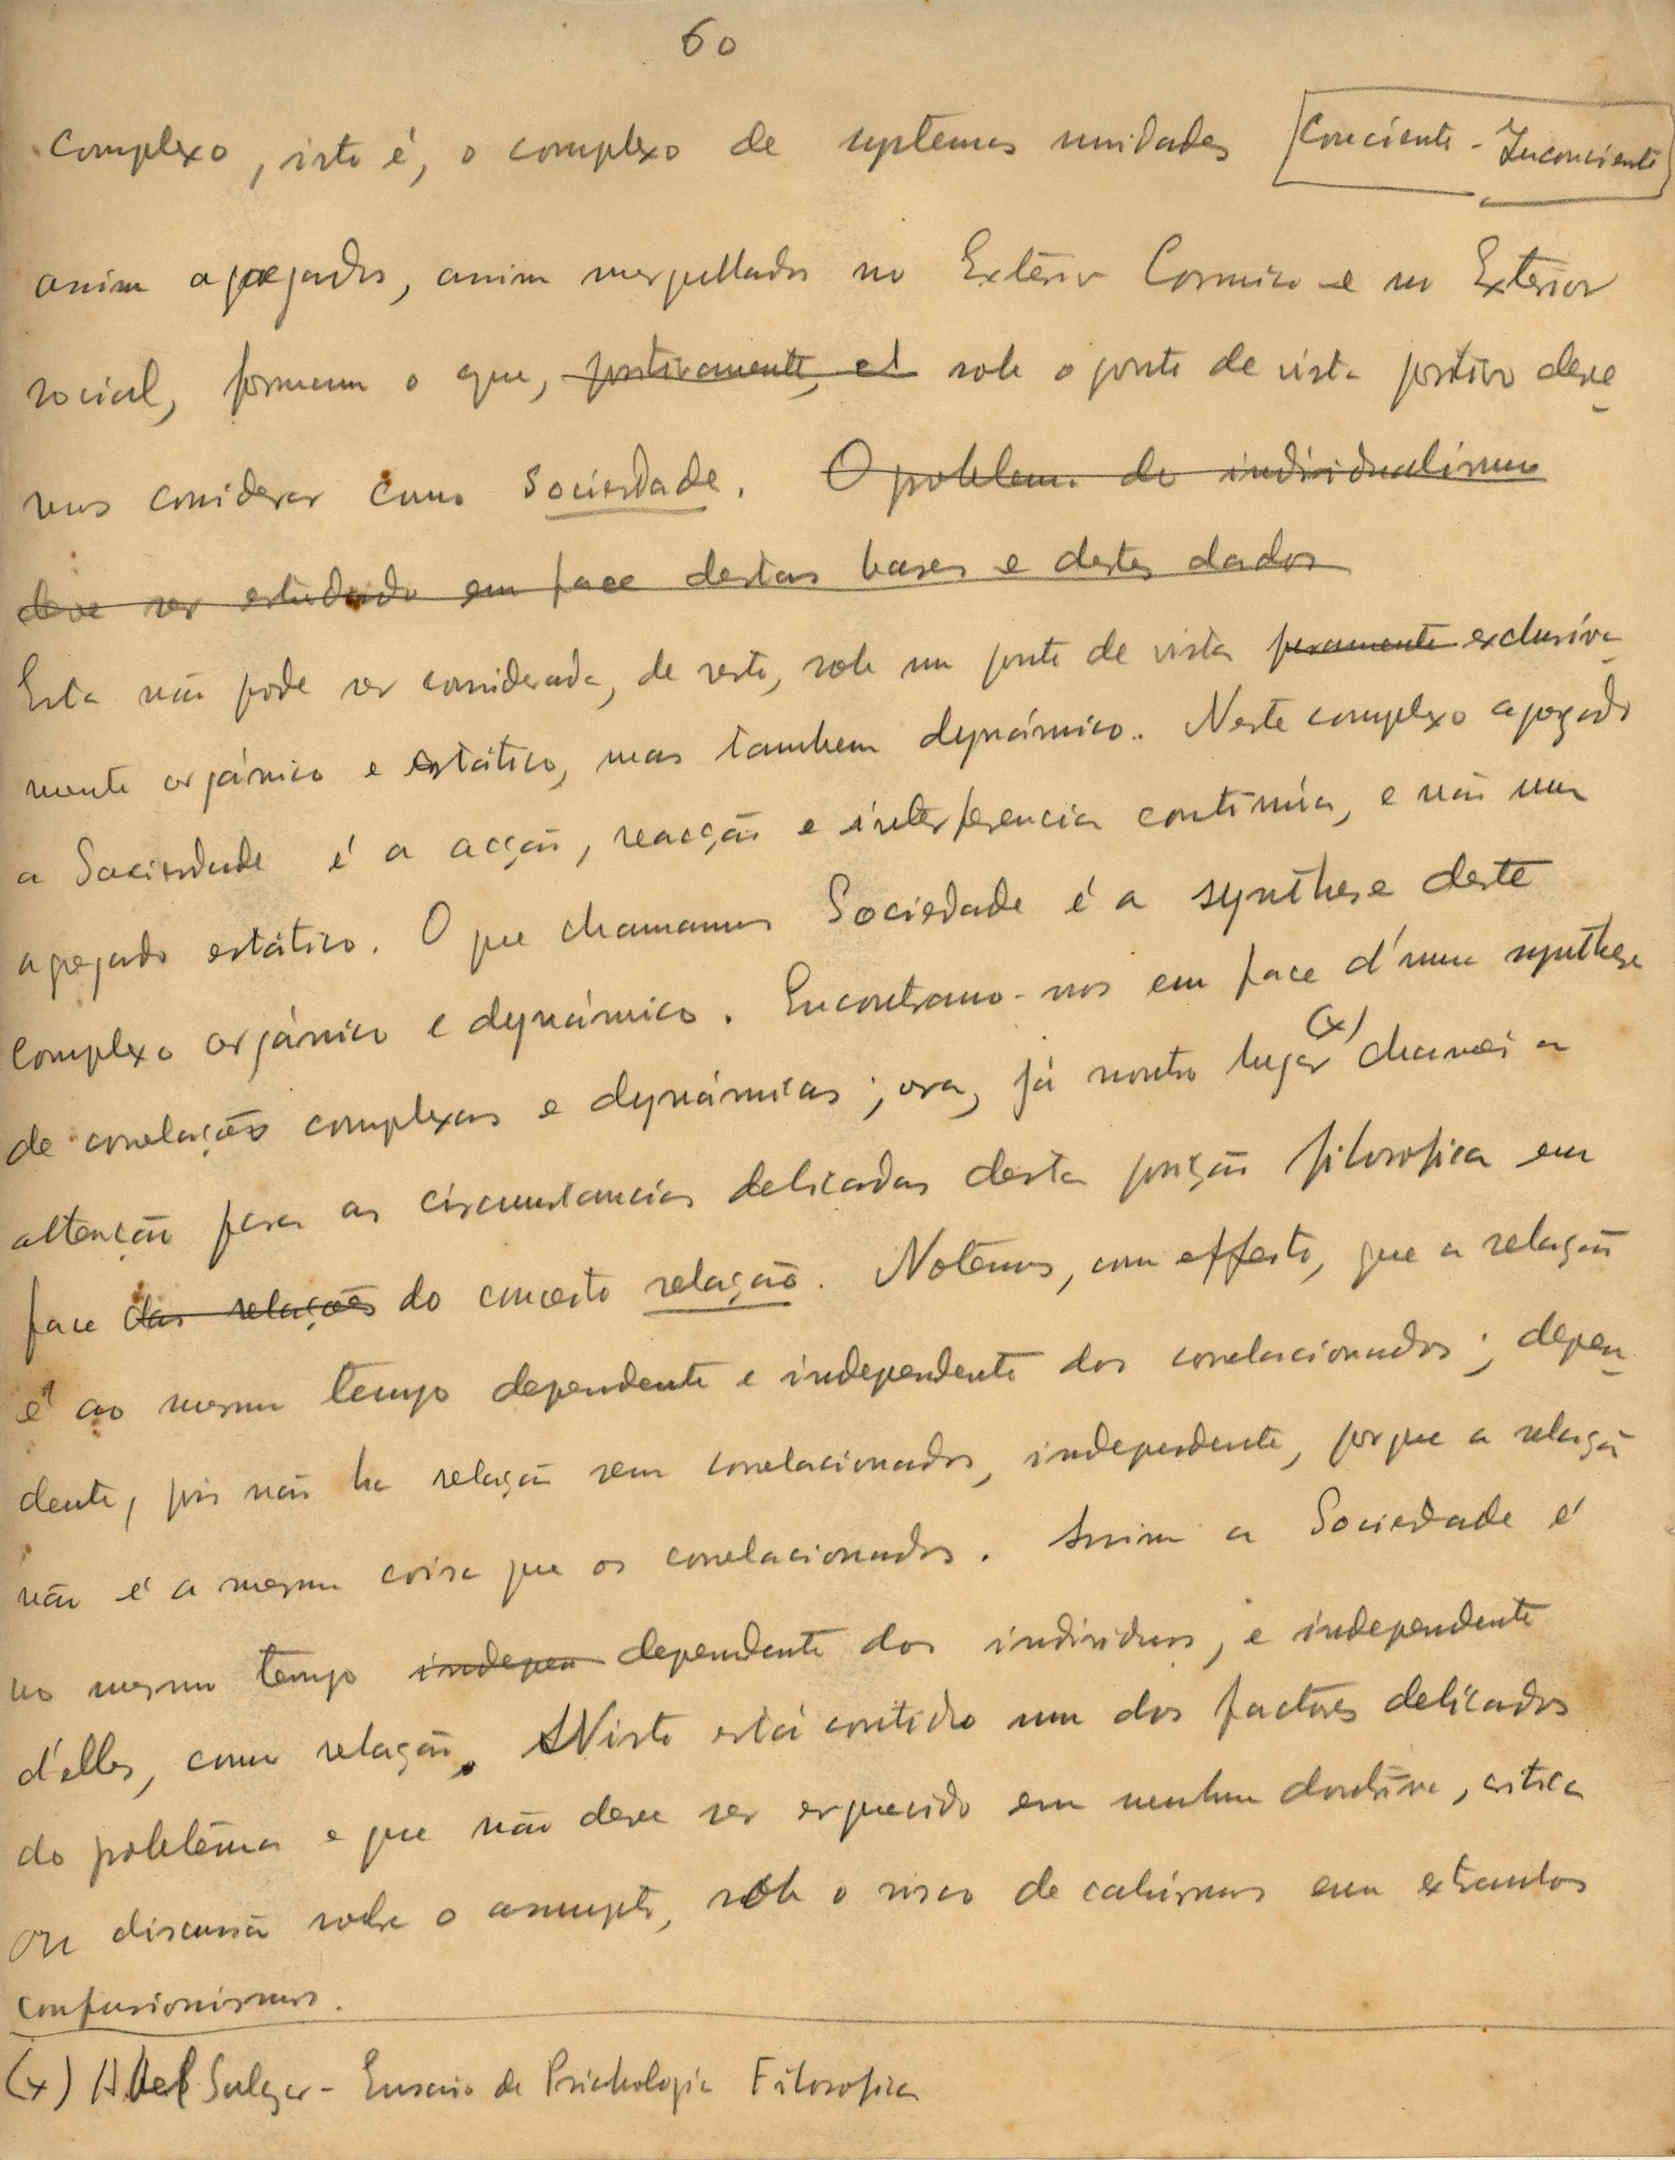 60
complexo, isto é, o complexo de systemas unidades [Conciente - Inconciente]
assim agregados, assim mergulhados no Exterior Cosmico e no Exterior
social, formam o que, positivamente, sob o ponto de vista positivo deve
mos considerar como Sociedade. O problema do individualismo
deve ser estudado em face destas bases e destes dados
Esta não pode ser considerada, de resto, sob um ponto de vista puramente exclusiva
mente orgánico e estático, mas tambem dynámico. Neste complexo agregado
a Sociedade é a acção, reacção e interferencia continúa, e não um
agregado estático. O que chamamos Sociedade é a synthese deste
complexo orgánico e dynámico. Encontramo-nos em face d'uma synthese
de correlação complexas e dynámicas; ora, já noutro lugar (x) chamei a
attenção para as circumstancias delicadas desta posição filosofica em
face das relações do conceito relação. Notemos, com effeito, que a relação
é ao mesmo tempo dependente e independente dos correlacionados; depen
dente, pois não ha relação sem correlacionados, independente, porque a relação
não é a mesma coisa que os correlacionados. Assim a Sociedade é
ao mesmo tempo indepen dependente dos individuos, e independente
d'elles, como relação. Nisto está contido um dos factores delicados
do problema e que não deve ser esquecido em nenhuma doutrina, critica
ou discussão sobre o assumpto, sob o risco de cahirmos em extranhos
confusionismos.
(x) Abel Salazar - Ensaio de Psichologia Filosofica